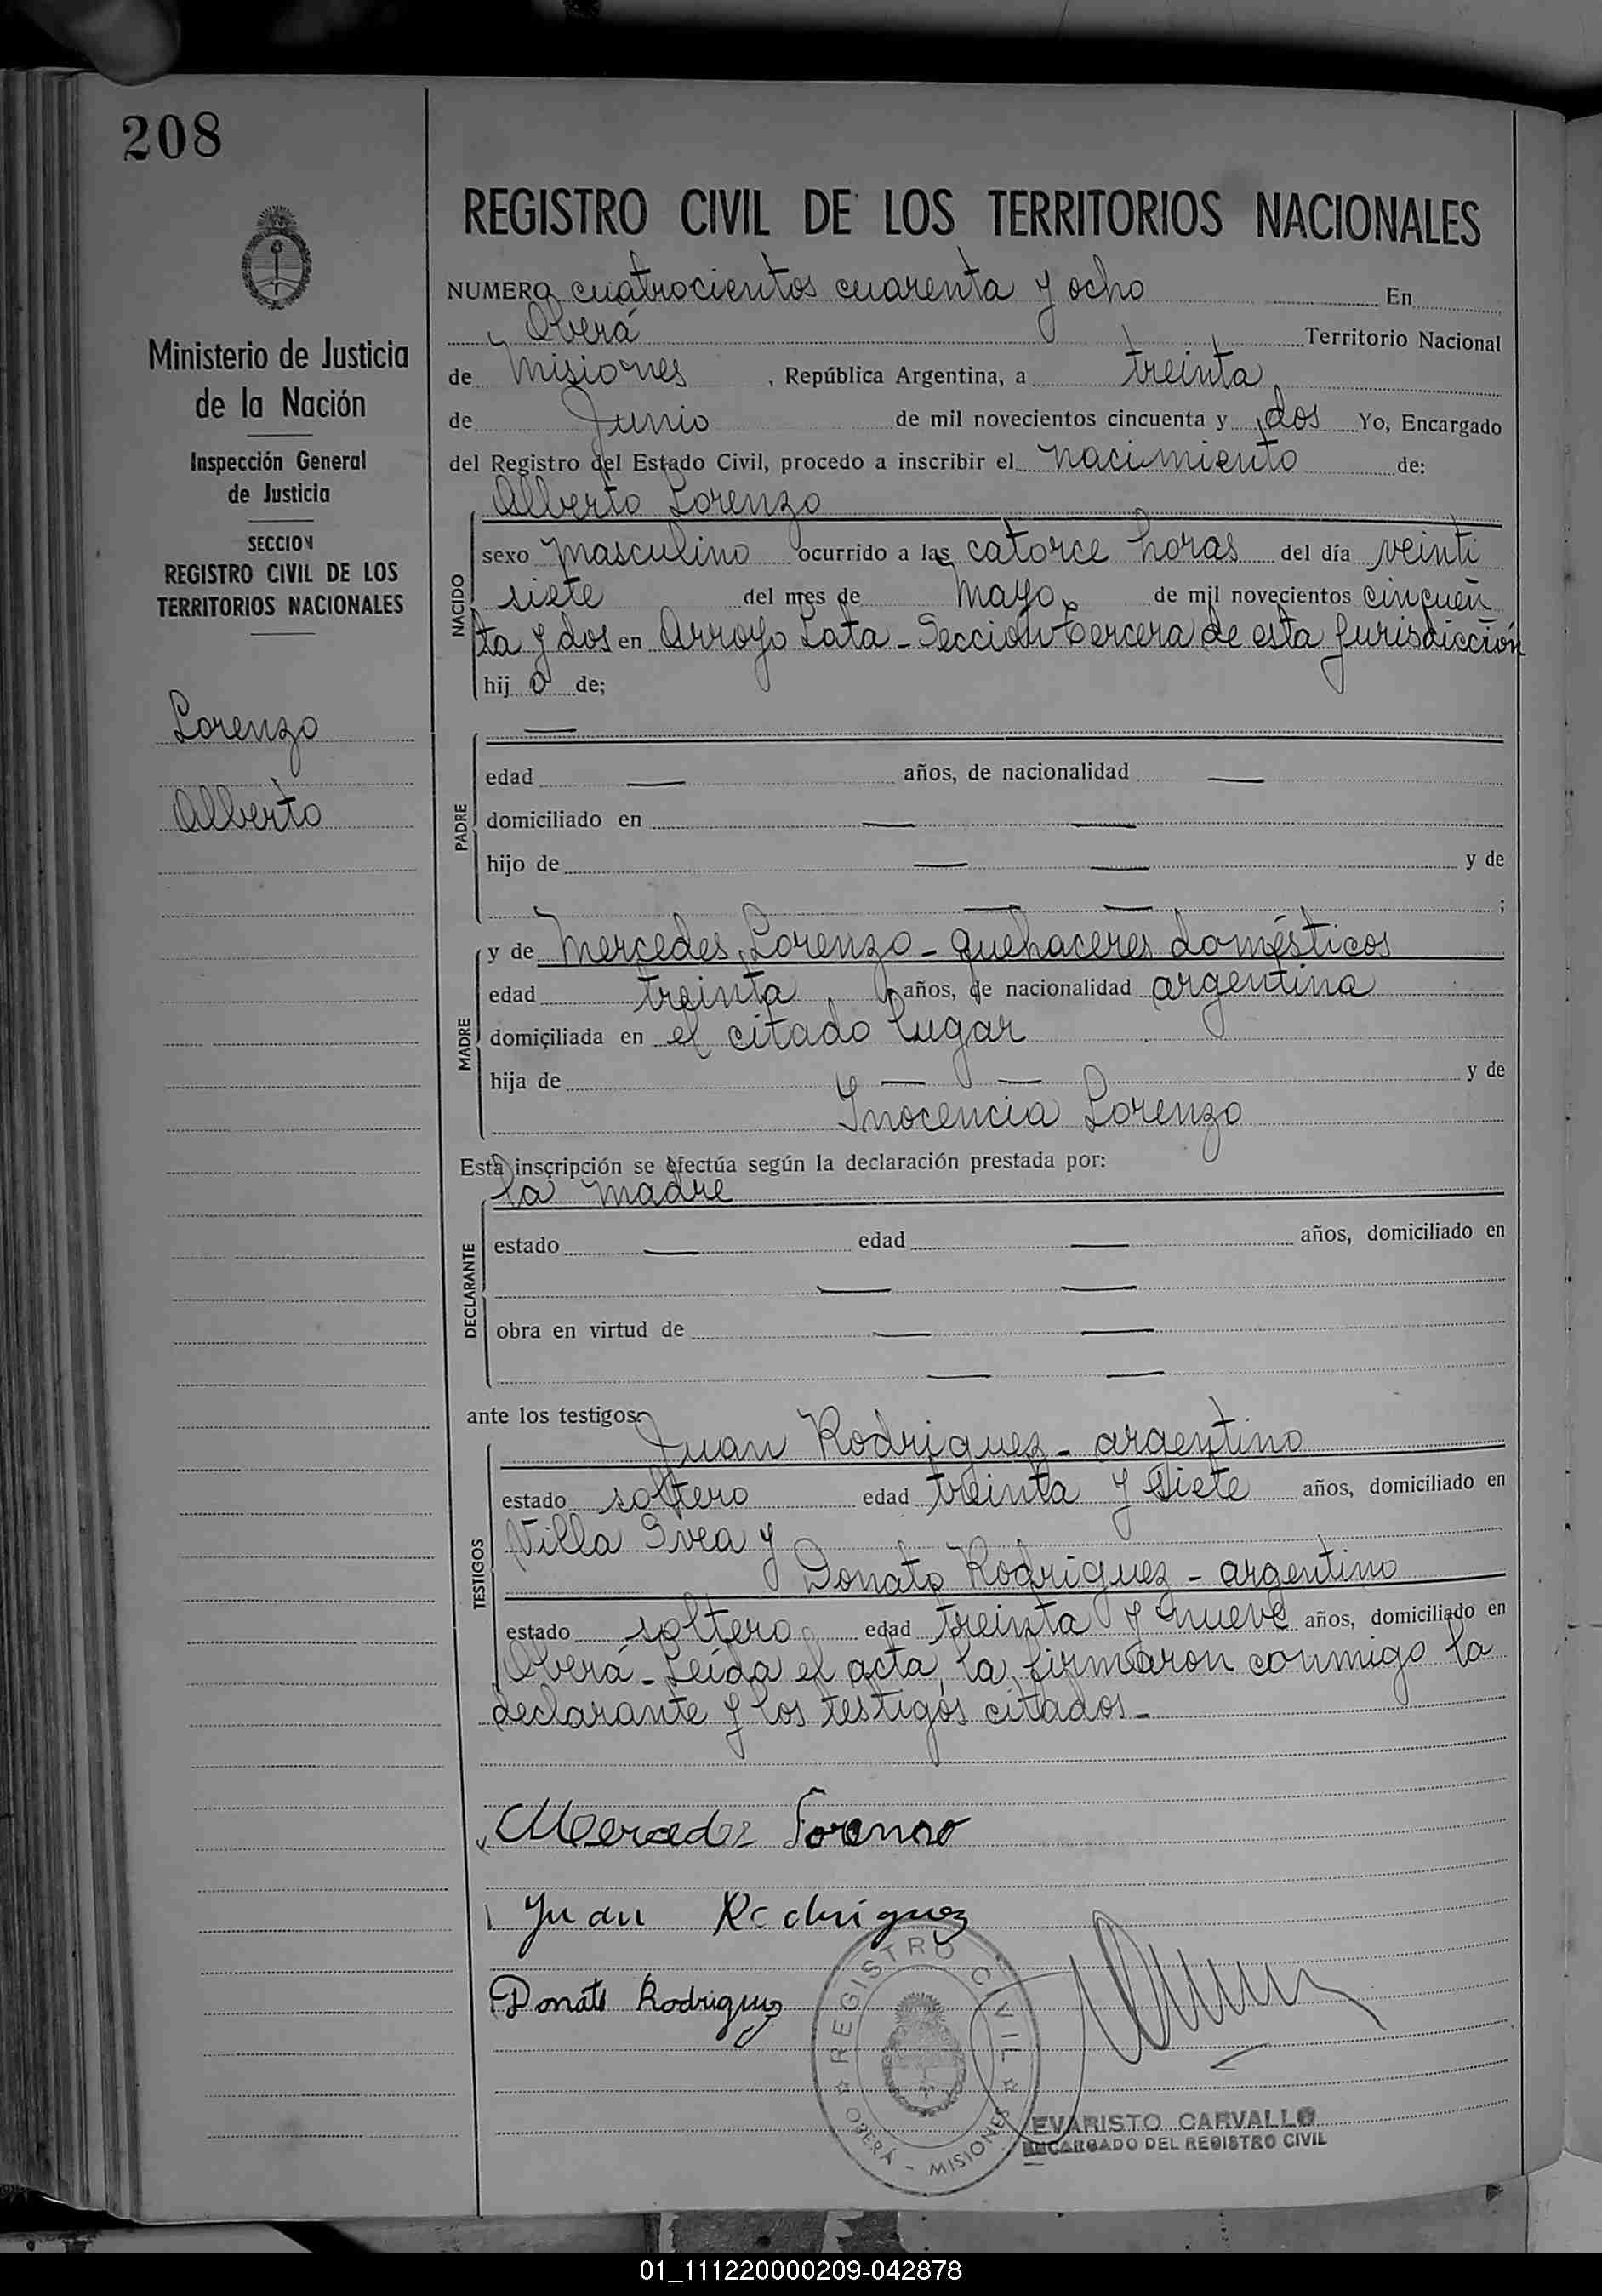 208
Ministerio de Justicia
de la Nación
Inspección General
de Justicia
SECCION
REGISTRO CIVIL DE LOS
TERRITORIOS NACIONALES
Lorenzo
Alberto
REGISTRO CIVIL DE LOS TERRITORIOS NACIONALES
NUMERO cuatrocientos cuarenta y ocho En
Oberá Territorio Nacional
de Misiones, República Argentina, a treinta
de Junio de mil novecientos cincuenta y dos Yo, Encargado
del Registro del Estado Civil, procedo a inscribir el nacimiento de:
Alberto Lorenzo
NACIDO
sexo masculino ocurrido a las catorce horas del día veinti
siete del mes de Mayo de mil novecientos cincuen
ta y dos en Arroyo Lata - Sección tercera de esta jurisdicción
hijo de;
—
PADRE
edad — años, de nacionalidad —
domiciliado en — —
hijo de — — y de
— — ;
MADRE
y de Mercedes Lorenzo - quehaceres domésticos
edad treinta años, de nacionalidad argentina
domiciliada en el citado lugar
hija de — — y de
Inocencia Lorenzo
Esta inscripción se efectúa según la declaración prestada por:
la madre
DECLARANTE
estado — edad — años, domiciliado en
— —
obra en virtud de — —
— —
ante los testigos:
TESTIGOS
Juan Rodriguez - argentino
estado soltero edad treinta y siete años, domiciliado en
Villa Svea y
Donato Rodriguez - argentino
estado soltero edad treinta y nueve años, domiciliado en
Oberá - Leída el acta, la firmaron conmigo la
declarante y los testigos citados -
Mercedes Lorenzo
Juan Rodriguez
Donato Rodriguez
REGISTRO CIVIL
OBERÁ - MISIONES
EVARISTO CARVALLO
ENCARGADO DEL REGISTRO CIVIL
01_111220000209-042878